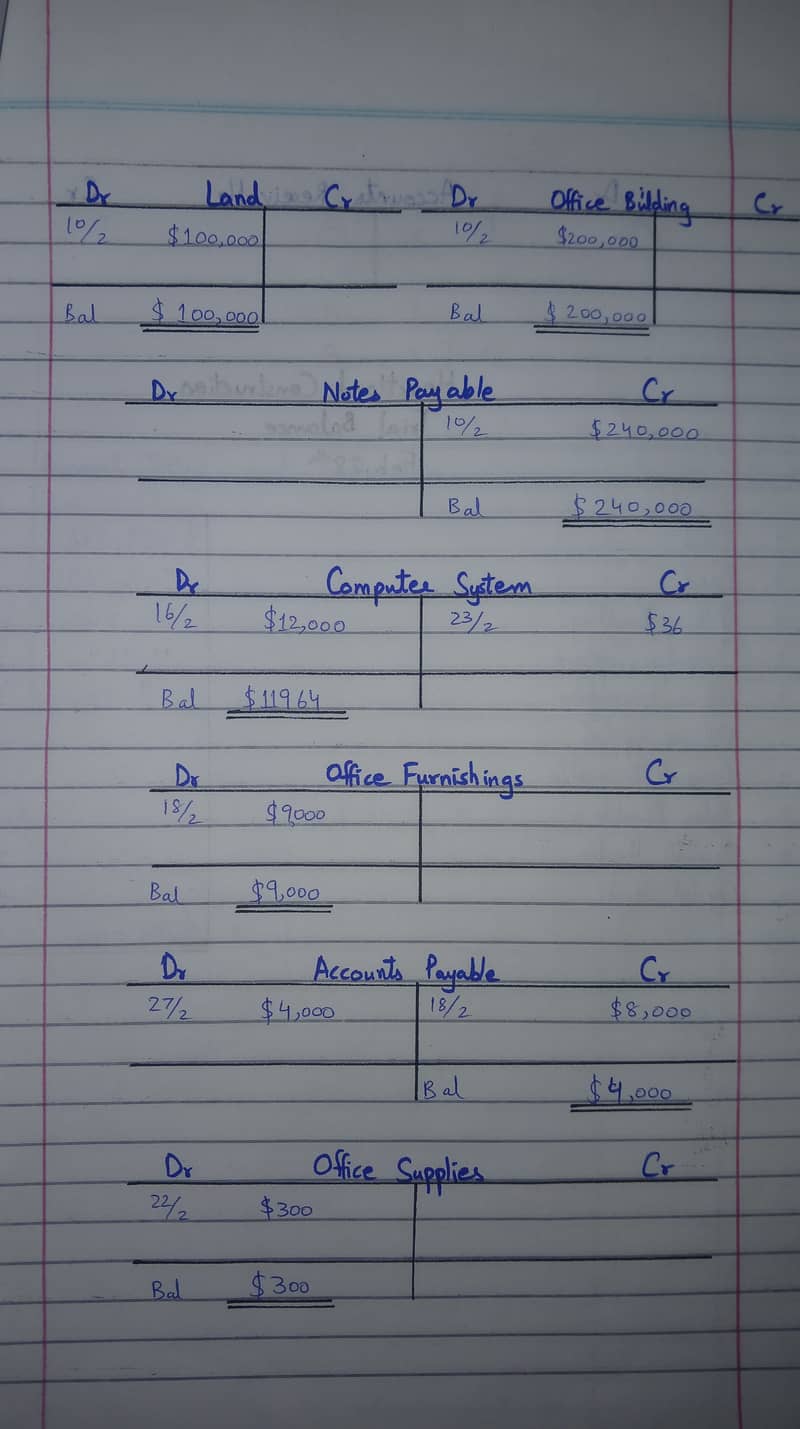 Dr Land Cr Dr Office Bilding Cr
10/2 $100,000 10/2 $200,000
Bal $ 100,000 Bal $ 200,000
Dr Notes Payable Cr
10/2 $240,000
Bal $ 240,000
Dr Computer System Cr
16/2 $12,000 23/2 $36
Bal $11964
Dr Office Furnishings Cr
18/2 $9,000
Bal $9,000
Dr Accounts Payable Cr
27/2 $4,000 18/2 $8,000
Bal $4,000
Dr Office Supplies Cr
22/2 $300
Bal $300